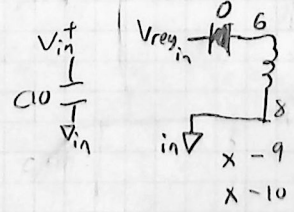 Vin+
C10
in
Vreg in
0
6
8
in
x - 9
x - 10